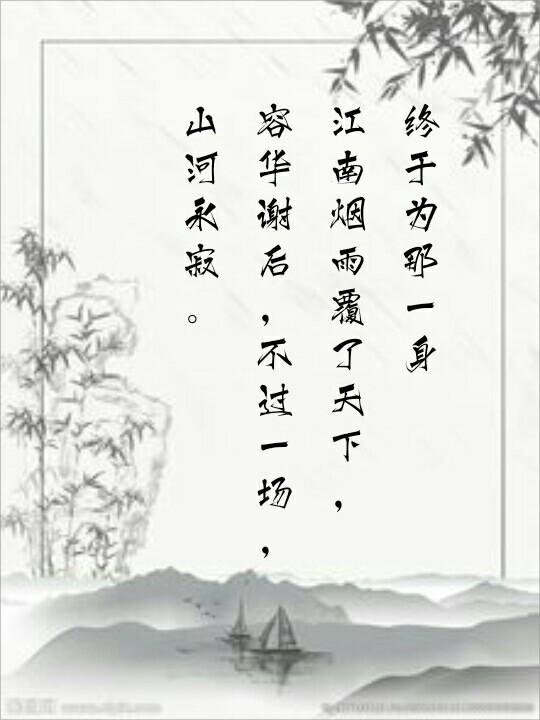 终于为那一身
江南烟雨覆了天下，
容华谢后，不过一场，
山河永寂。